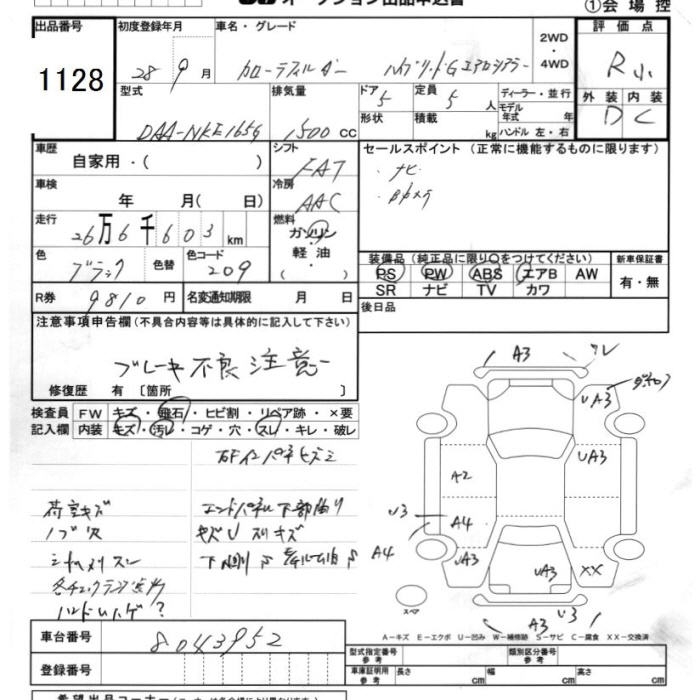 ①会場控
出品番号
1128
初度登録年月
28年9月
車名・グレード
カローラフィルダー ハイブリッドG エアロツアラー
2WD
・
4WD
評価点
R小
外装 内装
D C
型式
DAA-NKE165G
排気量
1500 CC
ドア 5
形状
定員 5人
積載 kg
ディーラー・並行
モデル年式 年
ハンドル 左・右
車歴
自家用・( )
シフト
FAT
車検
年 月( 日)
冷房
AAC
走行
26万6千603km
燃料
ガソリン
軽油
・( )
色
ブラック
色替
色コード
209
R券 9810円
名変通知期限 月 日
セールスポイント(正常に機能するものに限ります)
・ナビ
・Bカメラ
装備品(純正品に限り○をつけてください)
PS PW ABS エアB AW
SR ナビ TV カワ
新車保証書
有・無
後日品
注意事項申告欄(不具合内容等は具体的に記入して下さい)
ブレーキ不良注意
修復歴 有〔箇所 〕
検査員
記入欄
FW キズ・飛石・ヒビ割・リペア跡・×要
内装 キズ・汚レ・コゲ・穴・スレ・キレ・破レ
荷室キズ
エンドパネル下部曲り
キズU スリキズ
A3
UA3
UA3
A2
A4
U3
A4
UA3
UA3
××
A3
U3
スペア
A-キズ E-エクボ U-凹み W-補修跡 S-サビ C-腐食 XX-交換済
車台番号
8043952
登録番号
型式指定番号
参考
類別区分番号
参考
車庫証明用
参考
長さ cm
幅 cm
高さ cm